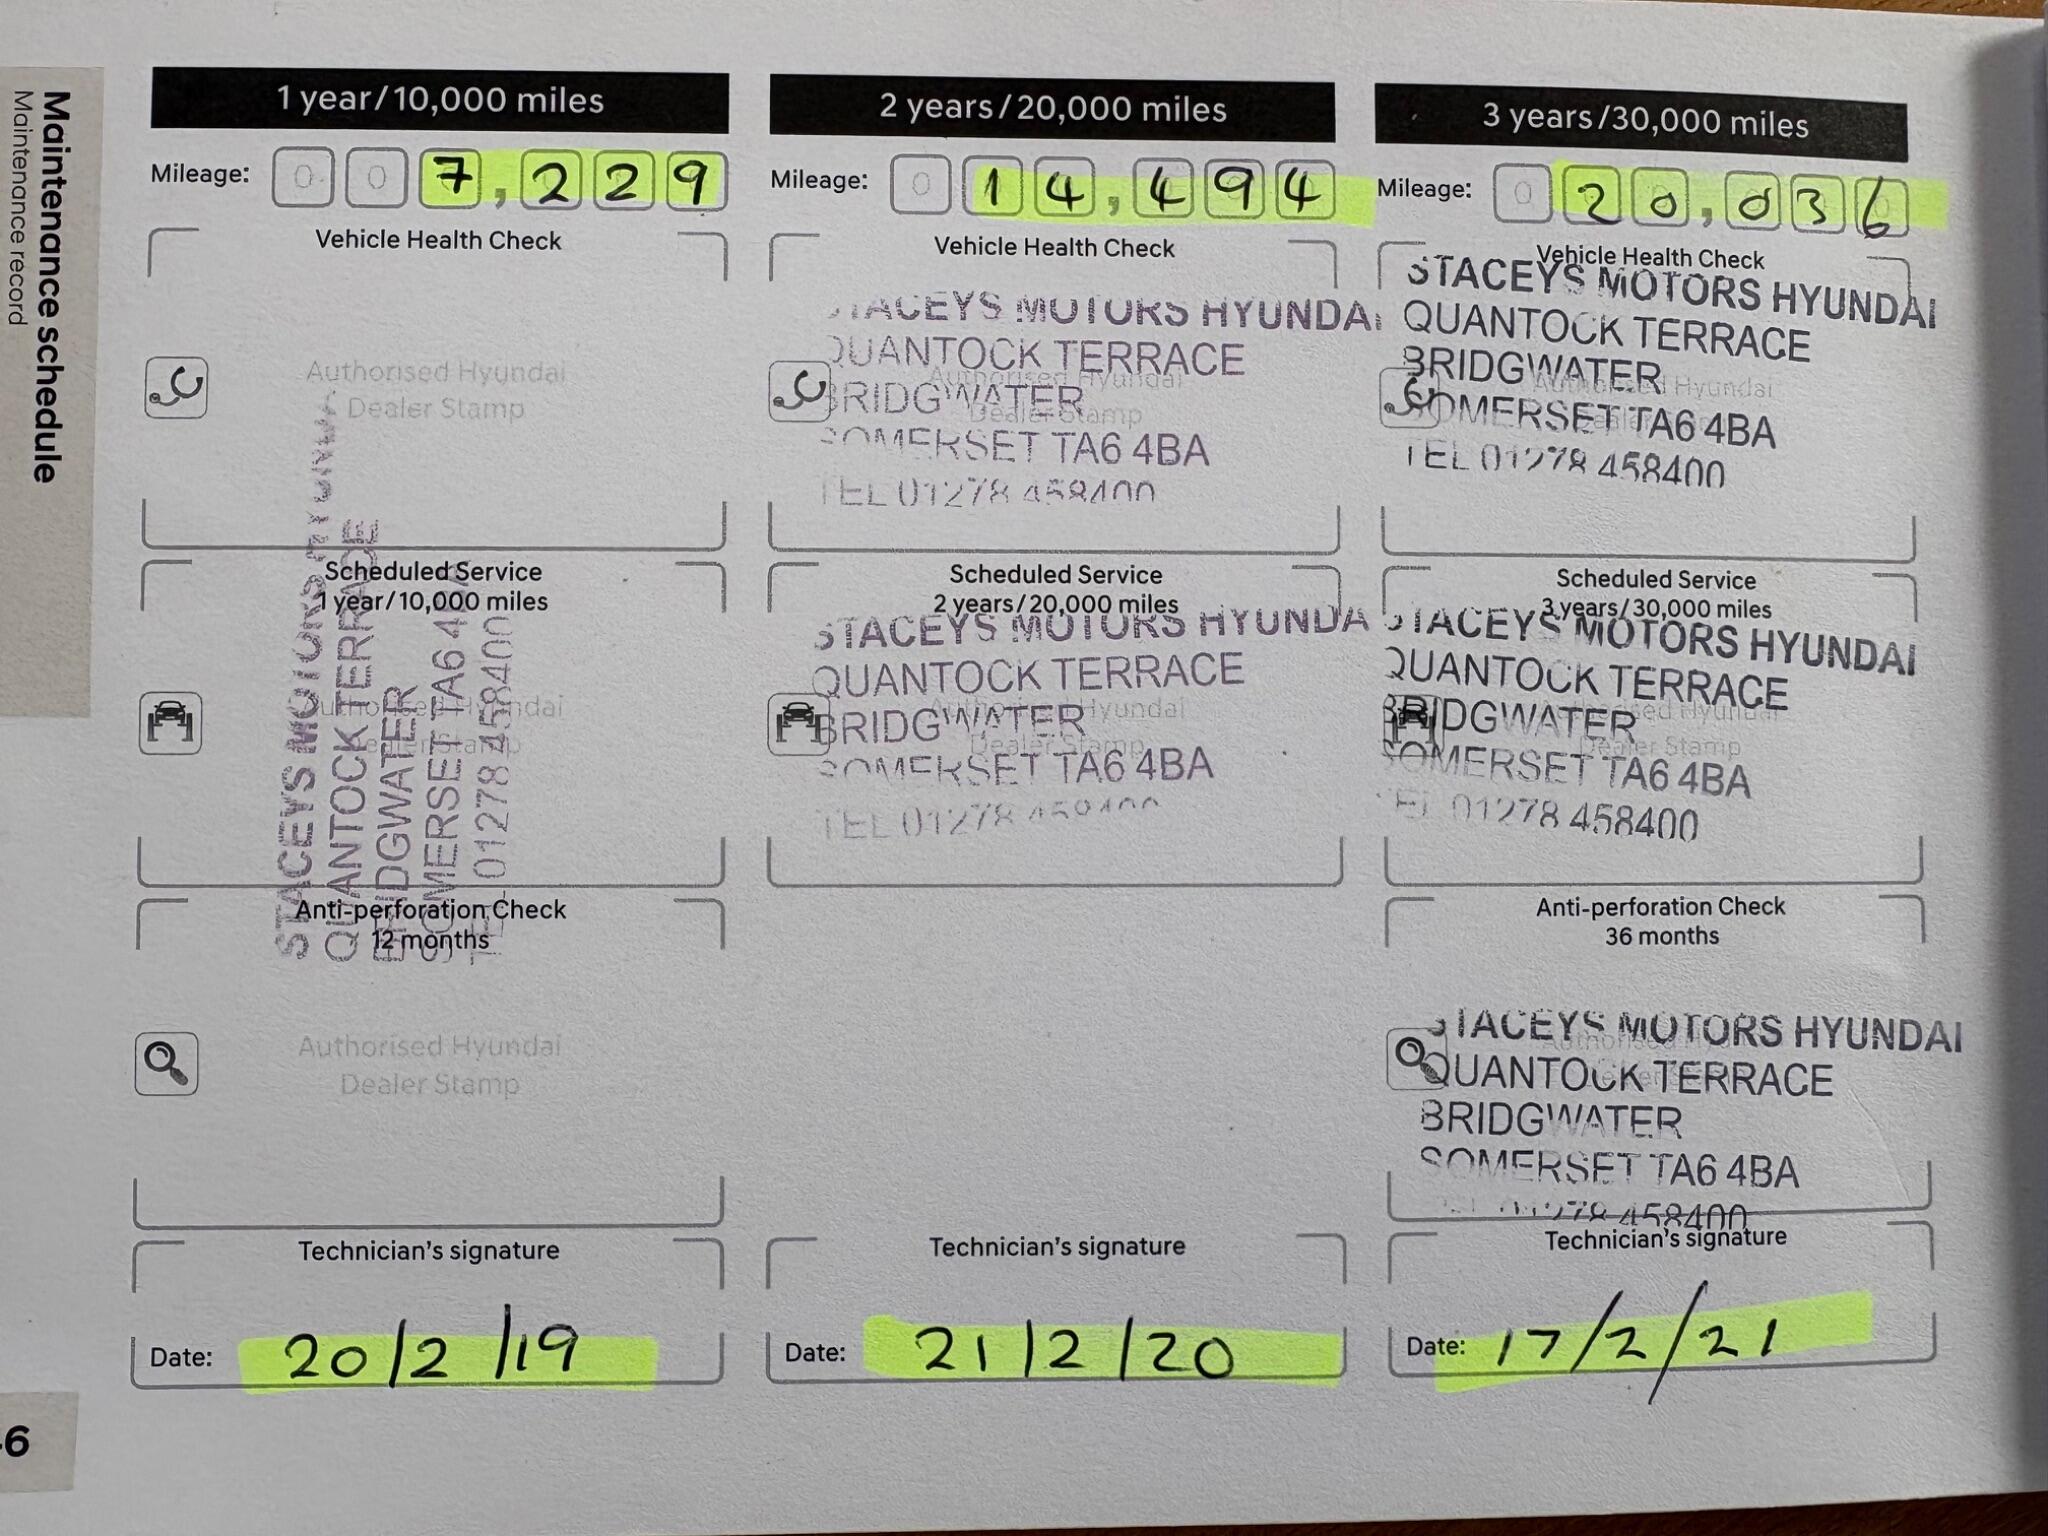 Maintenance schedule
Maintenance record
1 year/10,000 miles
Mileage: 0 0 7,229
Vehicle Health Check
Authorised Hyundai
Dealer Stamp
Scheduled Service
1 year/10,000 miles
Authorised Hyundai
Dealer Stamp
STACEYS MOTORS HYUNDAI
QUANTOCK TERRACE
BRIDGWATER
SOMERSET TA6 4BA
TEL 01278 458400
Anti-perforation Check
12 months
Authorised Hyundai
Dealer Stamp
Technician's signature
Date: 20/2/19
2 years/20,000 miles
Mileage: 0 14,494
Vehicle Health Check
Authorised Hyundai
Dealer Stamp
STACEYS MOTORS HYUNDAI
QUANTOCK TERRACE
BRIDGWATER
SOMERSET TA6 4BA
TEL 01278 458400
Scheduled Service
2 years/20,000 miles
Authorised Hyundai
Dealer Stamp
STACEYS MOTORS HYUNDA
QUANTOCK TERRACE
BRIDGWATER
SOMERSET TA6 4BA
TEL 01278 458400
Technician's signature
Date: 21/2/20
3 years/30,000 miles
Mileage: 0 20,036
Vehicle Health Check
Authorised Hyundai
Dealer Stamp
STACEYS MOTORS HYUNDAI
QUANTOCK TERRACE
BRIDGWATER
SOMERSET TA6 4BA
TEL 01278 458400
Scheduled Service
3 years/30,000 miles
Authorised Hyundai
Dealer Stamp
STACEYS MOTORS HYUNDAI
QUANTOCK TERRACE
BRIDGWATER
SOMERSET TA6 4BA
TEL 01278 458400
Anti-perforation Check
36 months
Authorised
STACEYS MOTORS HYUNDAI
QUANTOCK TERRACE
BRIDGWATER
SOMERSET TA6 4BA
01278 458400
Technician's signature
Date: 17/2/21
6